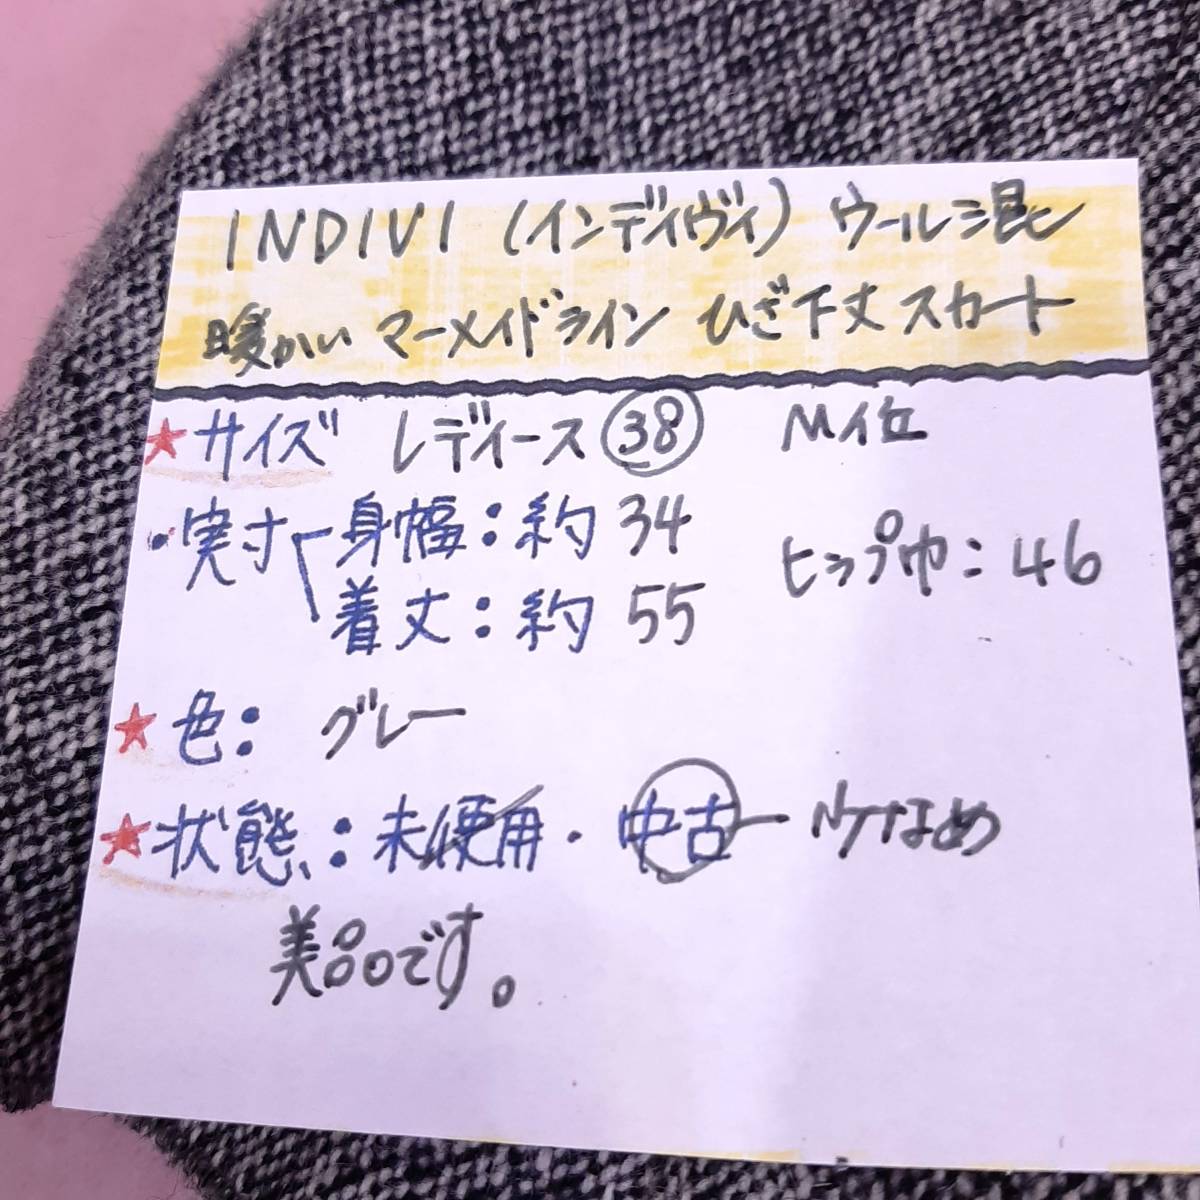 INDIVI (インディヴィ) ウール混
暖かい マーメイドライン ひざ下丈 スカート
★サイズ レディース 38 M位
・実寸 身幅:約 34 ヒップ巾:46
着丈:約 55
★色: グレー
★状態:未使用・中古ー 少なめ
美品です。